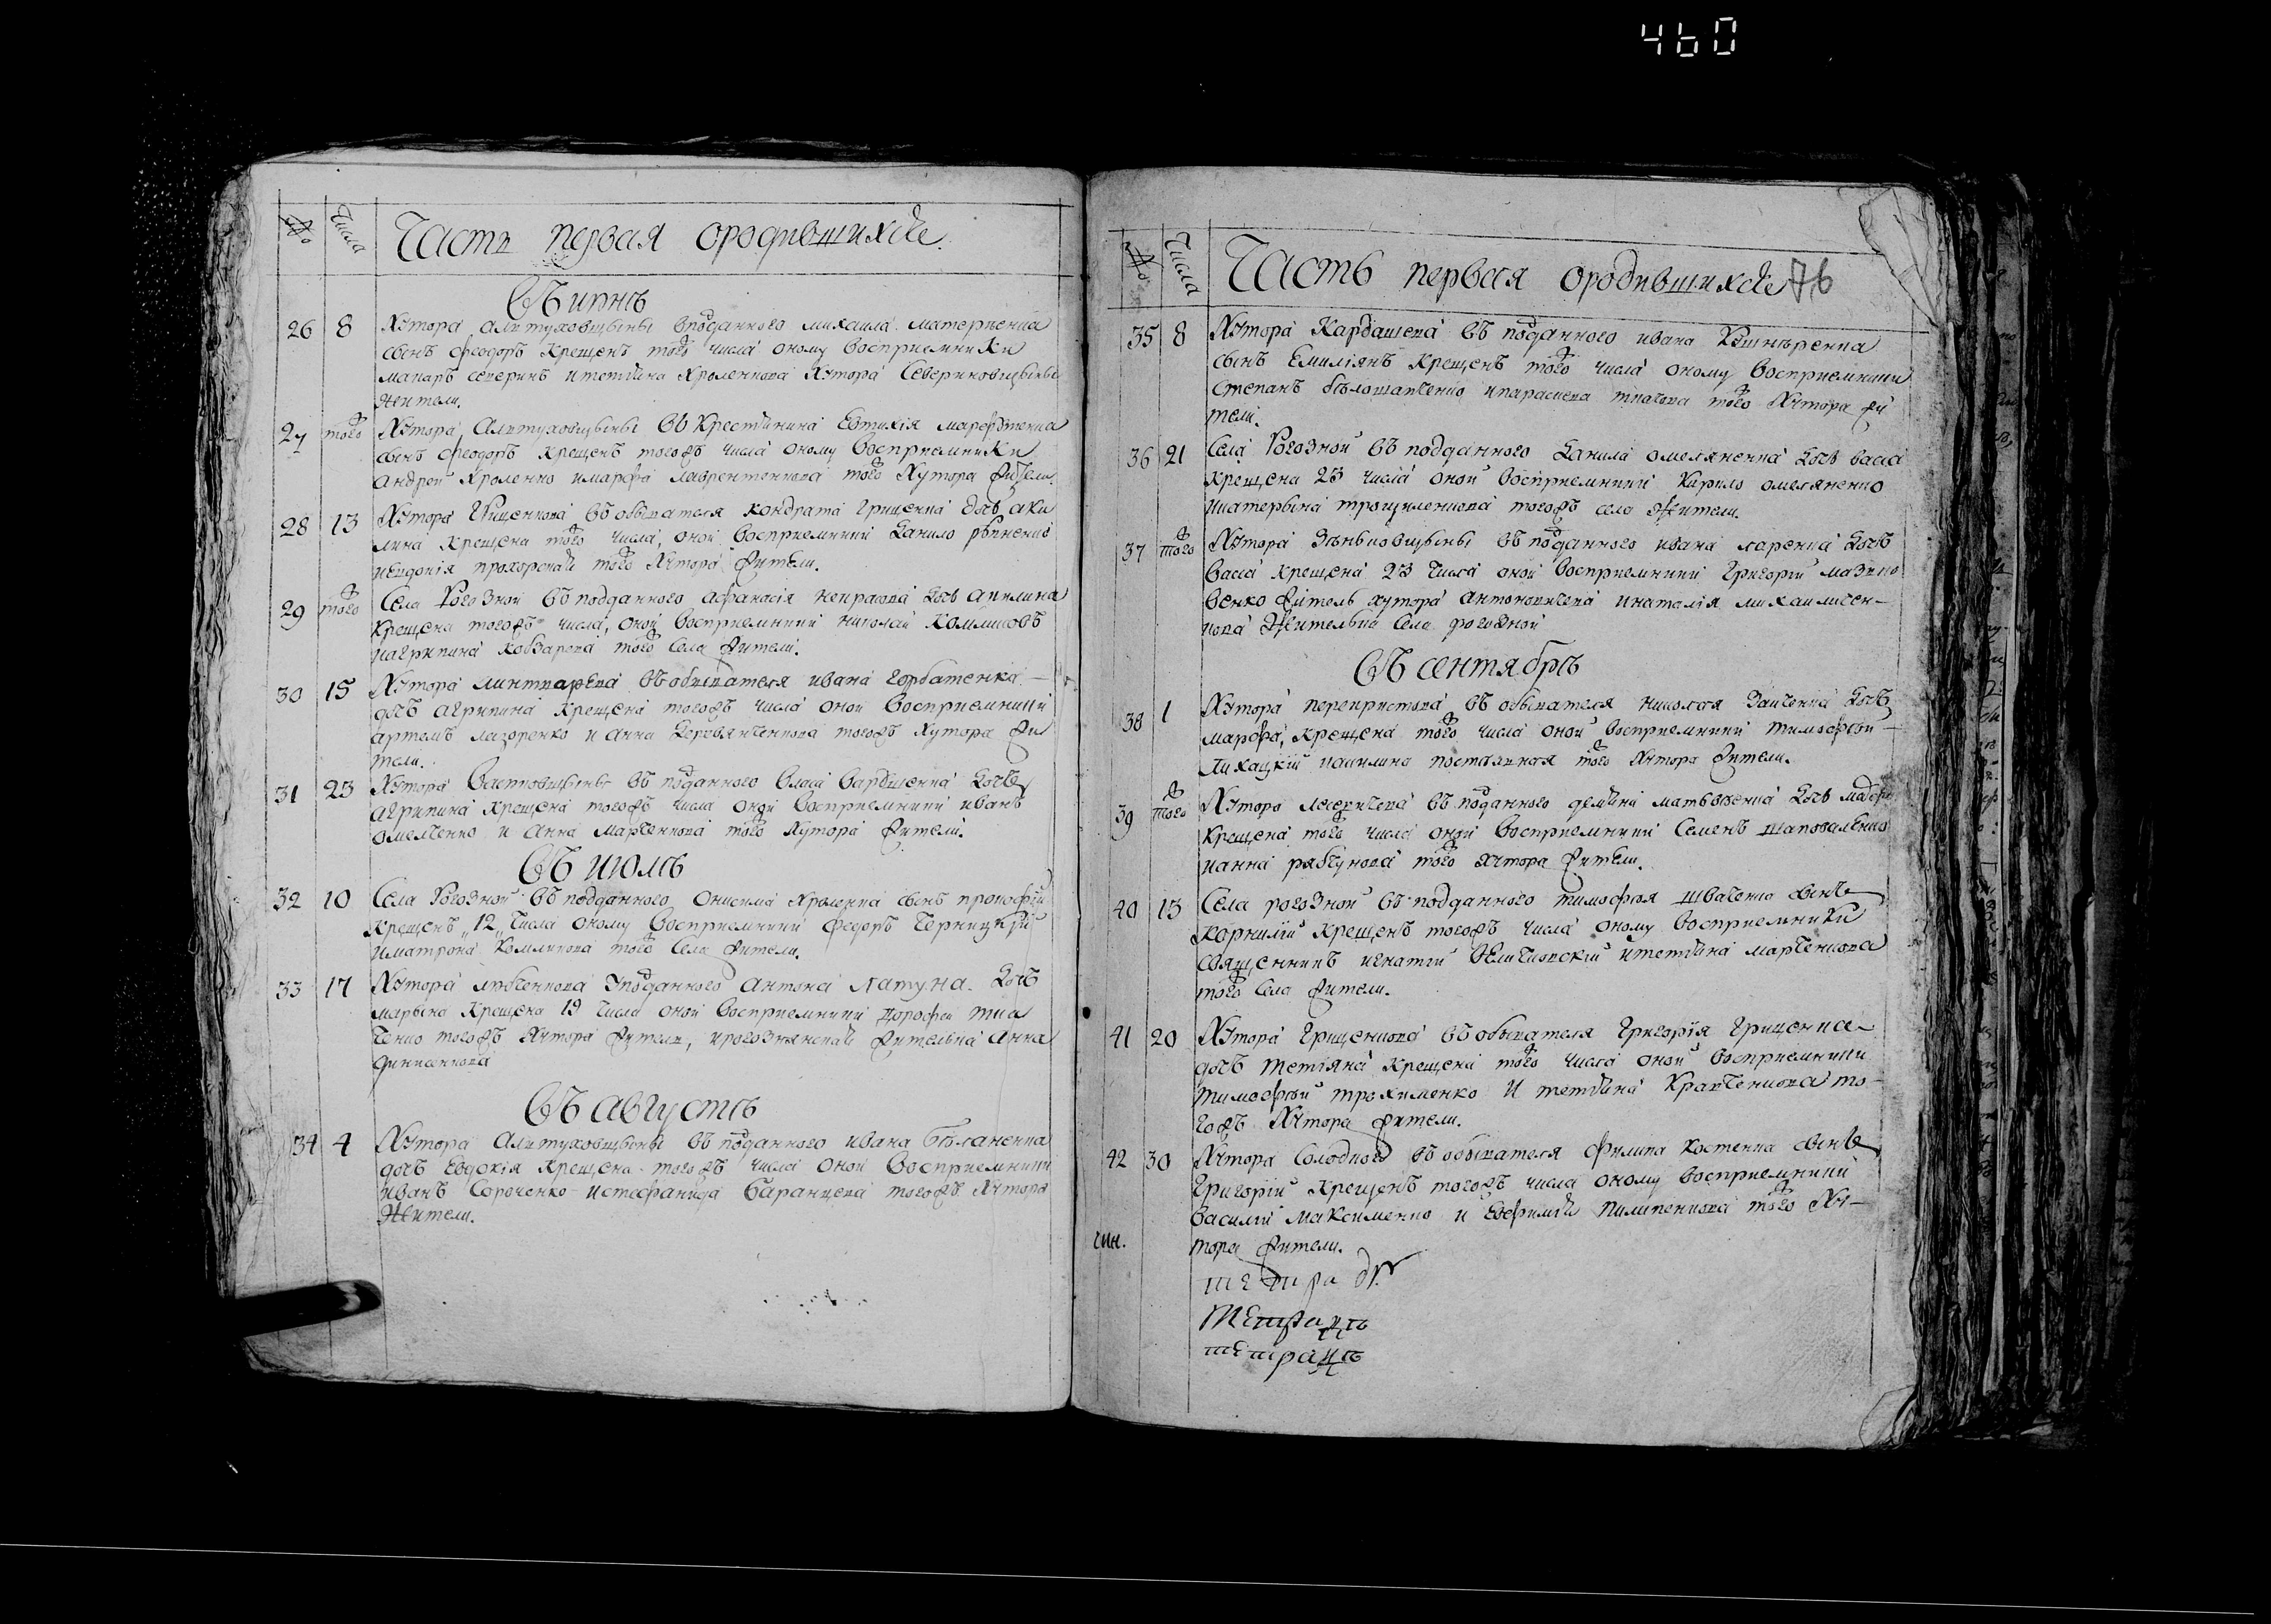 460
№ Числа Часть первая ородившихся.
Въ июнѣ
26 8 Хутора Алтуховщины вподданного михаила матвѣенка
сынъ феодоръ крещенъ тогожъ числа оному восприемники
макаръ северинъ итетяна кроленкова хутора Севериновщины
жители.
27 тогож Хутора Алтуховщины въ Крестянина Евтихія
сынъ феодоръ крещенъ тогожъ числа оному восприемники
андрей кроленко имарфа лаврентенкова тогож хутора жители.
28 13 Хутора Грищенкова въ обывателя кондрата грищенка дочъ аки
лина крещена тогож числа, оной восприемники данило
иевдокія тогож хутора жители.
29 тогож Села Рогозной въ подданного афанасія некрасова дочъ акилина
крещена тогожъ числа, оной восприемники николай комликовъ
иагрипина кобзарева тогож села жители.
30 15 Хутора линтварева въ обывателя ивана горбатенка
дочъ агрипина крещена тогожъ числа оной восприемники
артемъ лазоренко и анна деревянченкова тогожъ хутора жи
тели.
31 23 Хутора въ подданного власа дочъ
агрипина крещена тогожъ числа оной восприемники иванъ
омелченко и анна марченкова тогож хутора жители.
Въ июлѣ
32 10 Села Рогозной въ подданного онисима кроленка сынъ прокофій
крещенъ „12„ числа оному восприемники федоръ Черницкій
иматрона комликова тогож села жители.
33 17 Хутора уподданного антона латуна дочъ
марьяна крещена 19 числа оной восприемники дорофей тка
ченко тогожъ хутора житель, ирогознянская жителка анна
денисенкова
Въ августѣ
34 4 Хутора Алтуховщины въ подданного ивана бѣланенка
дочъ евдокія крещена тогожъ числа оной восприемники
иванъ Сороченко истефанида баранцева тогожъ хутора
жители.
№ Числа Часть первая ородившихся 76
35 8 Хутора Кардашева въ подданного ивана Кушнѣренка
сынъ Емиліянъ крещенъ тогож числа оному восприемники
степанъ бѣлошапченко ипараскева ткачова тогож хутора жи
тели.
36 21 Села Рогозной въ подданного данила омеляненка дочъ васса
крещена 23 числа оной восприемники кирило омеляненко
икатерына трощиленкова тогожъ села жители.
37 тогож Хутора Зѣнковщины въ подданного ивана ларенка дочъ
васса крещена 23 числа оной восприемники григорій мазно
венко житель хутора антоновичева инаталія михаиличен-
кова жителька села рогозной
Въ сентябрѣ
38 1 Хутора перекрестова въ обывателя николая заиченка дочъ
марфа, крещена тогож числа оной восприемники тимофей
Лихацкій иакилина тогож хутора жители.
39 тогож Хутора въ подданного демяна матвѣенка дочъ
крещена тогож числа оной восприемники семенъ шаповаленко
ианна рябчунова тогож хутора жители.
40 13 Села рогозной въ подданного тимофея швачено сынъ
корнилій крещенъ тогожъ числа оному восприемники
священникъ игнатій итетяна марченкова
тогож села жители.
41 20 Хутора Грищенкова въ обывателя григорія грищенка
дочъ тетіяна крещена тогож числа оной восприемники
тимофей трохименко и тетяна кравченкова то-
гожъ хутора жители.
42 30 Хутора Солодкого въ обывателя филипа костенка сынъ
григорій крещенъ тогожъ числа оному восприемники
василій максименко и евфимія пилипенкова тогож ху-
тора жители.
тетрадь
тетрадь